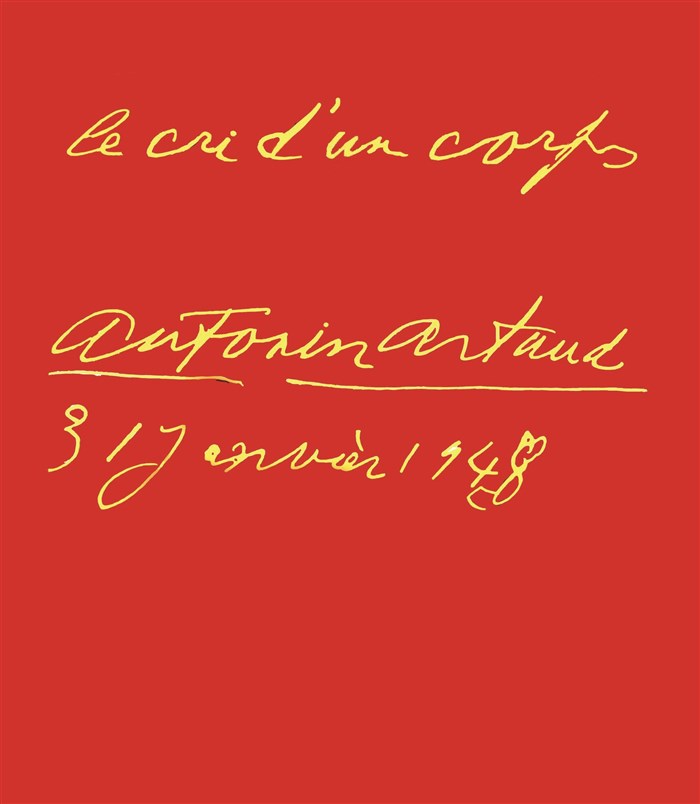 le cri d'un corps
Antonin Artaud
31 Janvièr 1948